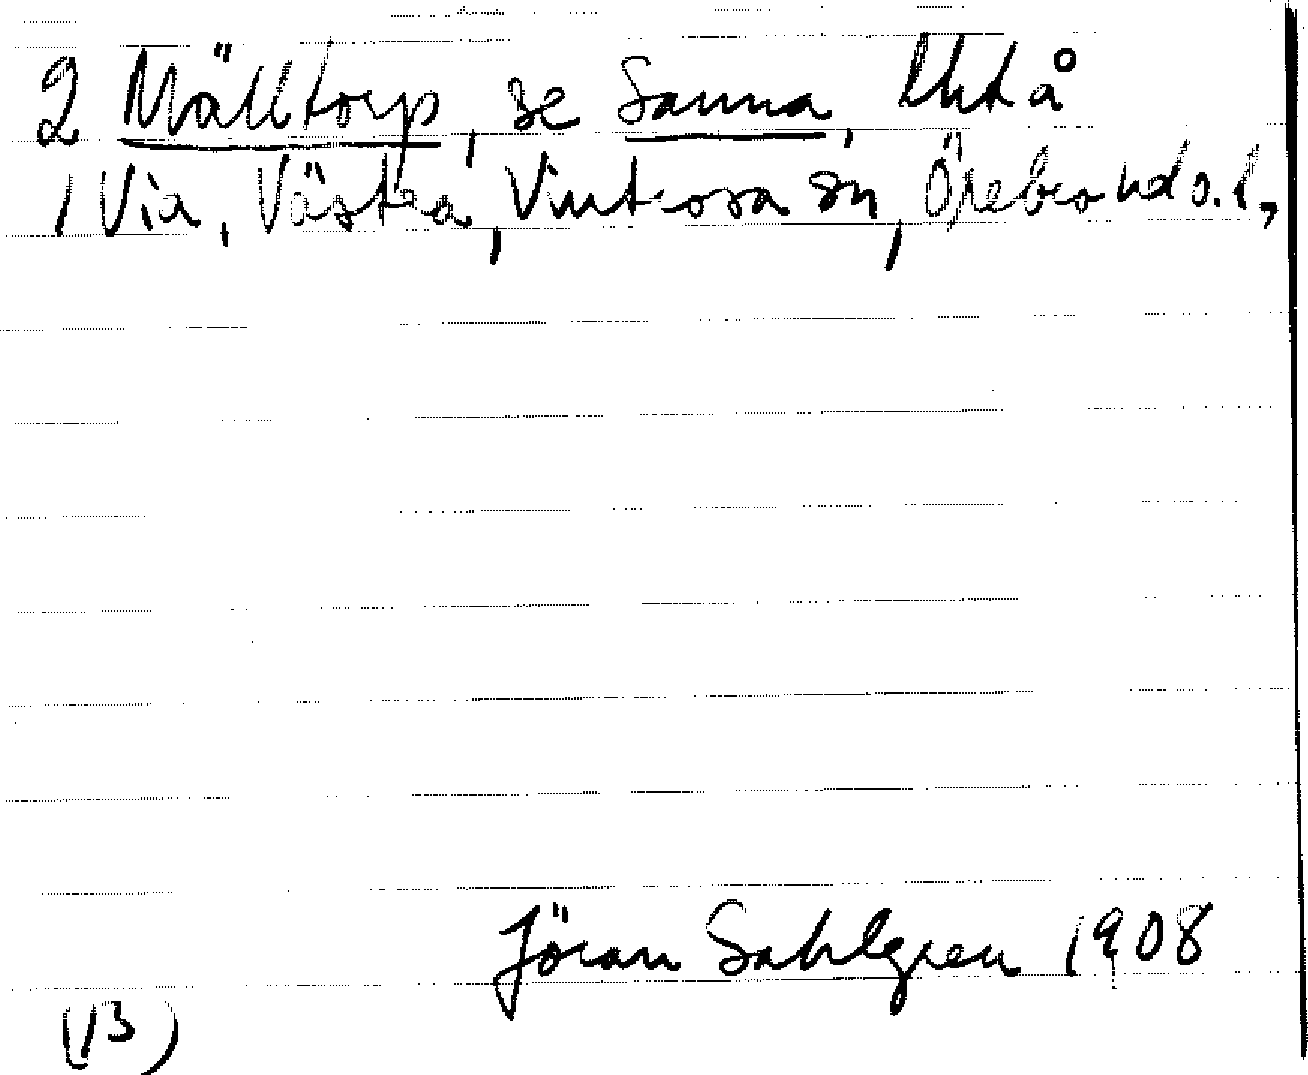 2 Mälltorp, se Sanna,
1 Via, Västra, Vintrosa sn, Örebro hd o. l,
Jöran Sahlgren 1908
(13)